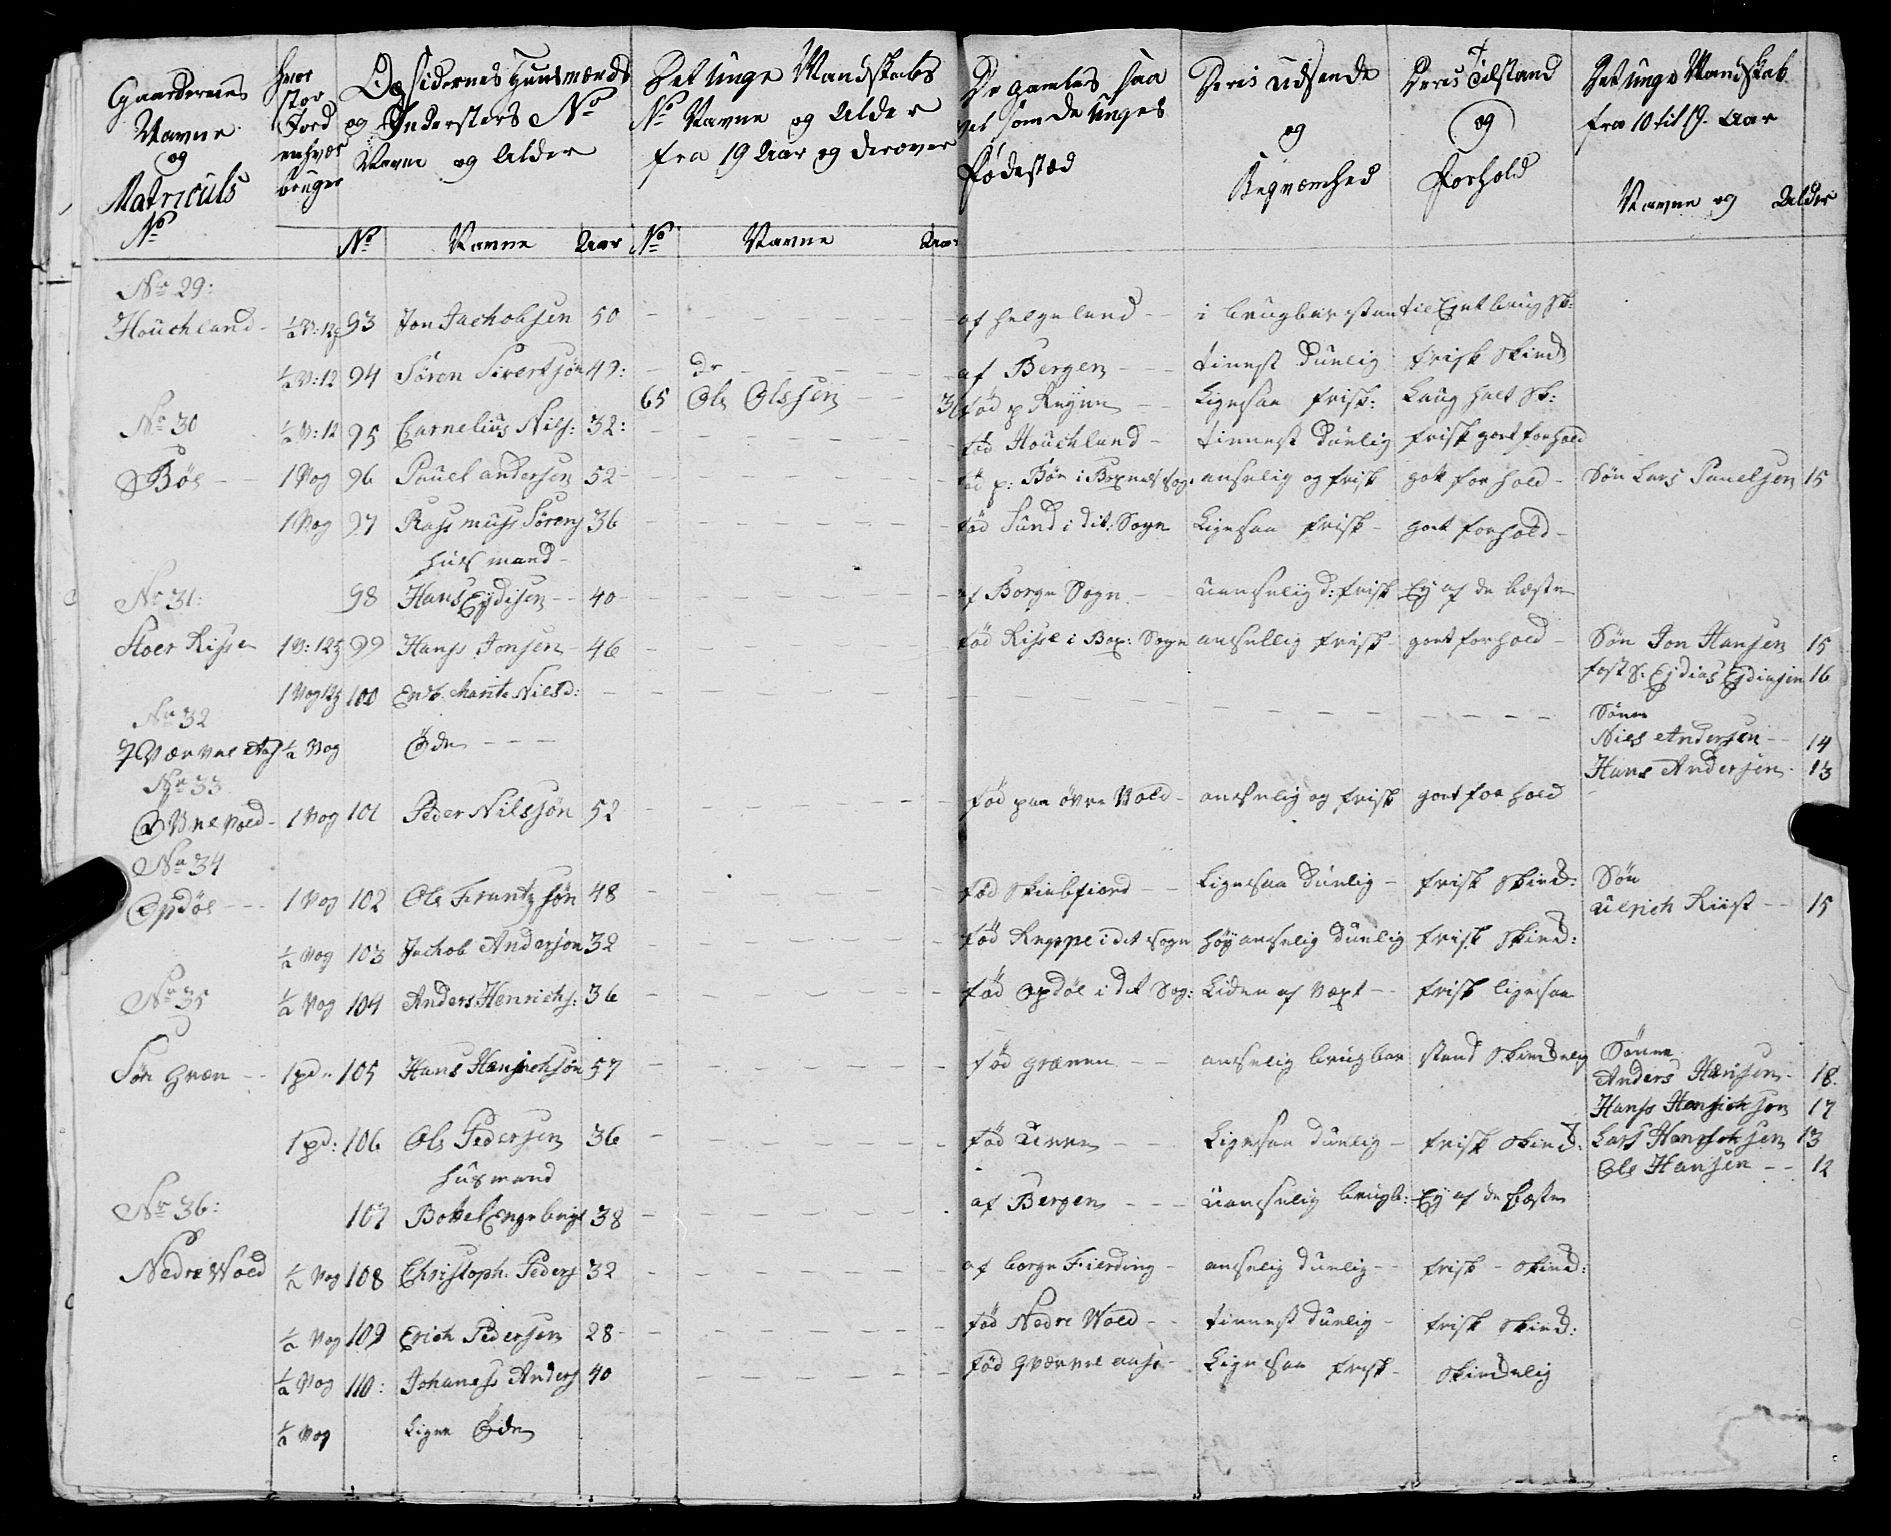 Gaardernes Navne og Matriculs No
hvor stor Jord enhver bruger
Opsidernes Huusmænds og Indersters No Navne og Alder
Det unge Mandskabs No Navne og Alder fra 19 Aar og derover
De gamles saa vel som de unges Fødested
Deris udseende og Beqvæmhed
Deris Tilstand og Forhold
Det unge Mandskab fra 10 til 19 Aar Navne og Alder
No Navne Aar No Navne Aar
No 29:
Houchland ½ V: 12 93 Jon Jachobsen 50 af helgeland i brugbar stan til Eget brug Sk:
½ V: 12 94 Søren Sivertsøn 49: dr af Bergen tienest duelig frisk Skind
65 Ole Olssen 36 fød p Ligesaa frisk: Laug halt Sk:
No 30 ½ V: 12 95 Carnelius Nils: 32: fød Houchland tienest duelig frisk got forhold
Böe 1 Vog 96 Pauel andersen 52 fød p: Böe i Boxnæs Sog: anselig og frisk got forhold Søn Lars Pauelsen 15
1 Vog 97 Rassmuss Sørens 36 fød Sund i dit: Sogn Ligesaa frisk got forhold
husmand
No 31: 98 Hans Eydisen 40 af Borge Sogn uanselig d: frisk Ey af de bæste
Stoer Risse 1 V: 12 99 Hanss Jonsen 46 fød Risse i Box: Sogn anselig frisk got forhold Søn Jon Hansen 15
1 Vog 12 100 Enk. Marite Nilsd: fost S: Eydias Eydiasen 16
No 32 Sønner
Qværnelaas ½ Vog Øde Niels Andersen 14
No 33 Hans Andersen 13
Øvrevold 1 Vog 101 Peder Nilssøn 52 fød paa øvre Vold anselig og frisk got forhold
No 34 Søn
Opdøl 1 Vog 102 Ole Frantzsøn 48 fød Skielfiord Ligesaa duelig frisk Skind: Ulrich Riist 15
½ Vog 103 Jachob Anderson 32 fød Knappe i dit sogn høy anselig duelig frisk Skind:
No 35 ½ Vog 104 Anders Henrichs: 36 fød Opdøl i dit Sog: Liden af Vext frisk ligesaa
Sönner
Sör Græn 1 pd: 105 Hans Henrichsøn 57 fød græenn anselig brugbar stand Skindelig Anders Hansen 18
Hanss Henrichsen 17
1 pd: 106 Ole Pedersen 36 fød Ligesaa duelig frisk skind: Lars Henrichsen 13
husmand Ole Hansen 12
No 36: 107 Bottel Engebrigt 38 af Bergen uanselig brugb: Ey af de bæste
Nedre Wold ½ Vog 108 Christoph: Peders 32 af borge Fierding anselig duelig frisk skind:
½ Vog 109 Erich Pedersen 28 fød Nedre Wold tienest duelig frisk skind:
½ Vog 110: Johaness Anders 40 fød Qværnelaass Ligesaa frisk skindelig
½ Vog Liger Øde